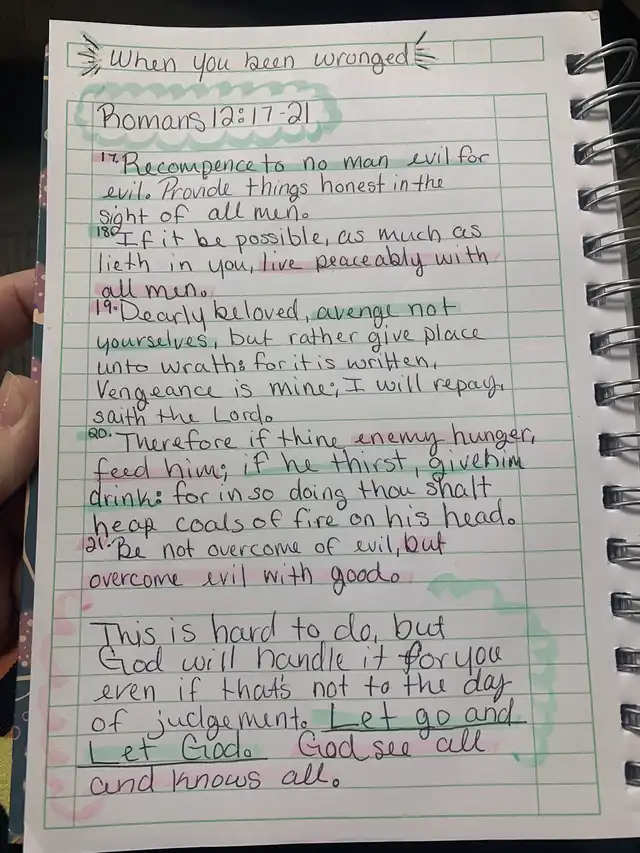 When you been wronged
Romans 12:17-21
17. Recompence to no man evil for
evil. Provide things honest in the
sight of all men.
18. If it be possible, as much as
lieth in you, live peaceably with
all men.
19. Dearly beloved, avenge not
yourselves, but rather give place
unto wrath: for it is written,
Vengeance is mine; I will repay,
saith the Lord.
20. Therefore if thine enemy hunger,
feed him; if he thirst, give him
drink: for in so doing thou shalt
heap coals of fire on his head.
21. Be not overcome of evil, but
overcome evil with good.
This is hard to do, but
God will handle it for you
even if that's not to the day
of judgement. Let go and
Let God. God see all
and knows all.